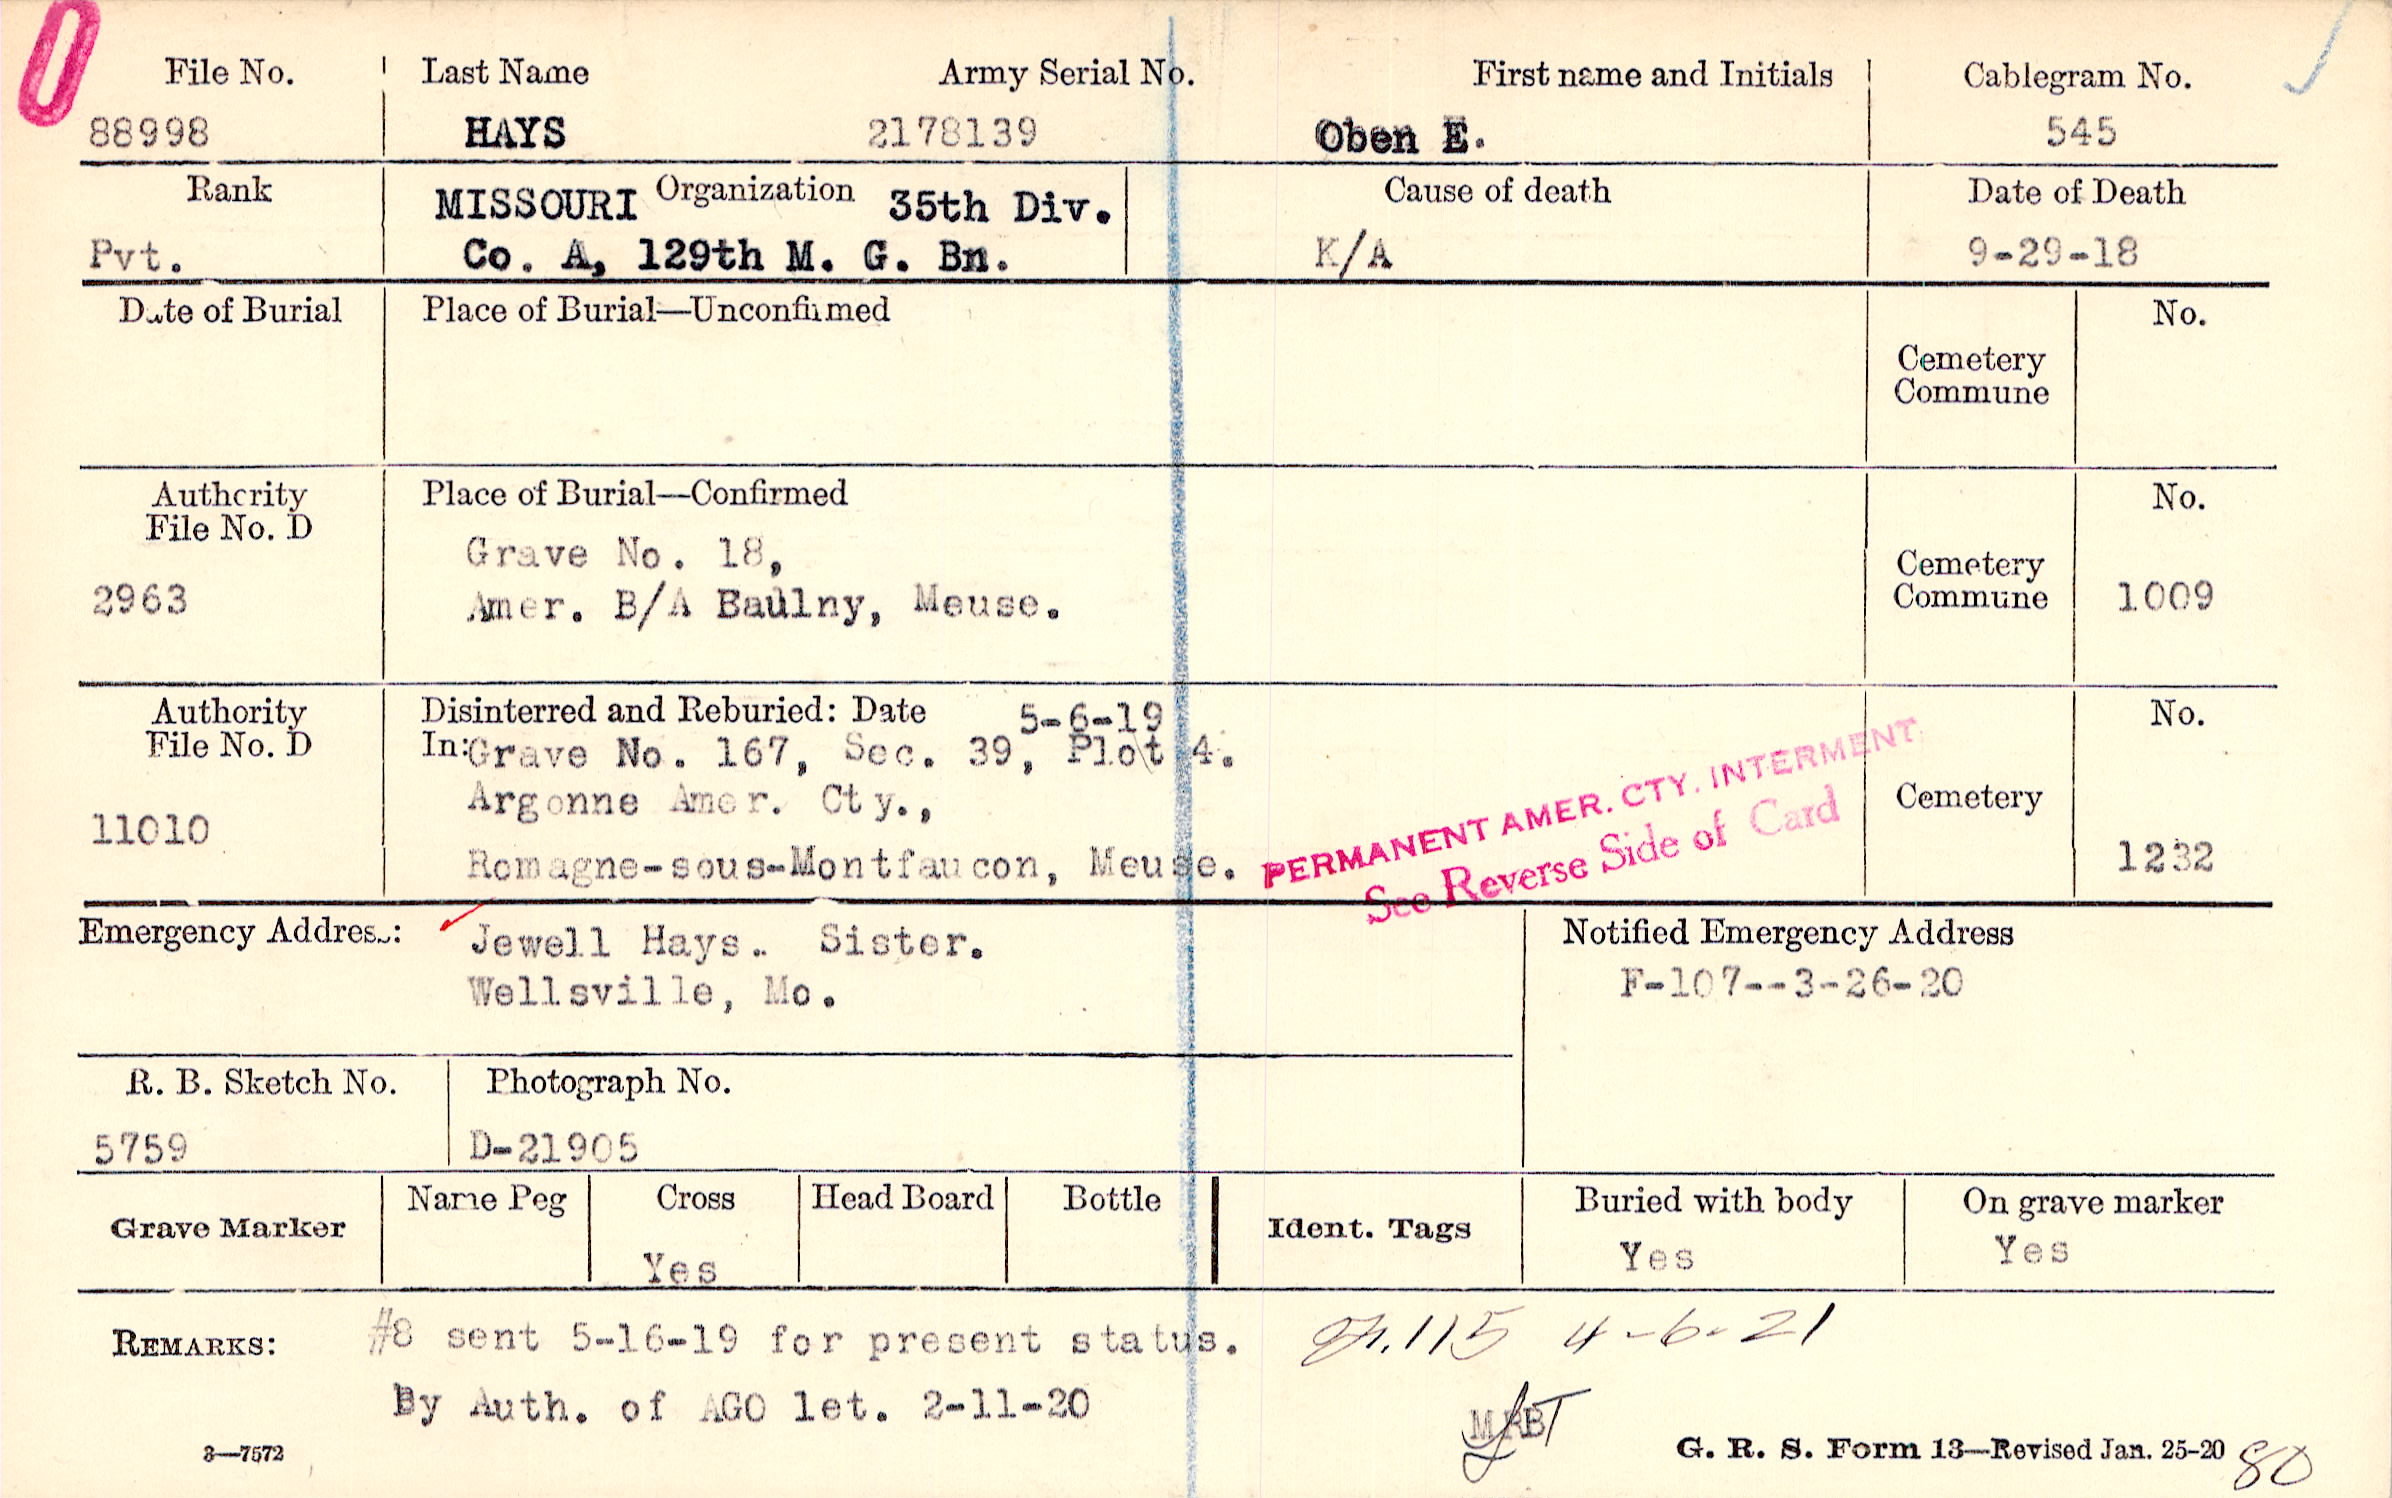 0
File No. Last Name Army Serial No. First name and Initials Cablegram No.
88998 HAYS 2178139 Oben E. 545
Rank MISSOURI Organization 35th Div. Cause of death Date of Death
Pvt. Co. A, 129th M. G. Bn. K/A 9-29-18
Date of Burial Place of Burial—Unconfirmed No.
Cemetery
Commune
Authority Place of Burial—Confirmed No.
File No. D
Grave No. 18,
Cemetery
2963 Amer. B/A Baulny, Meuse. Commune 1009
Authority Disinterred and Reburied: Date 5-6-19 No.
File No. D In: Grave No. 167, Sec. 39, Plot 4.
Argonne Amer. Cty., Cemetery
11010
Romagne-sous-Montfaucon, Meuse. 1232
PERMANENT AMER. CTY. INTERMENT
See Reverse Side of Card
Emergency Address: Jewell Hays. Sister. Notified Emergency Address
Wellsville, Mo. F-107--3-26-20
R. B. Sketch No. Photograph No.
5759 D-21905
Grave Marker Name Peg Cross Head Board Bottle Ident. Tags Buried with body On grave marker
Yes Yes Yes
REMARKS: #8 sent 5-16-19 for present status. 115 4-6-21
By Auth. of AGO let. 2-11-20
3—7572 G. R. S. Form 13—Revised Jan. 25-20 80